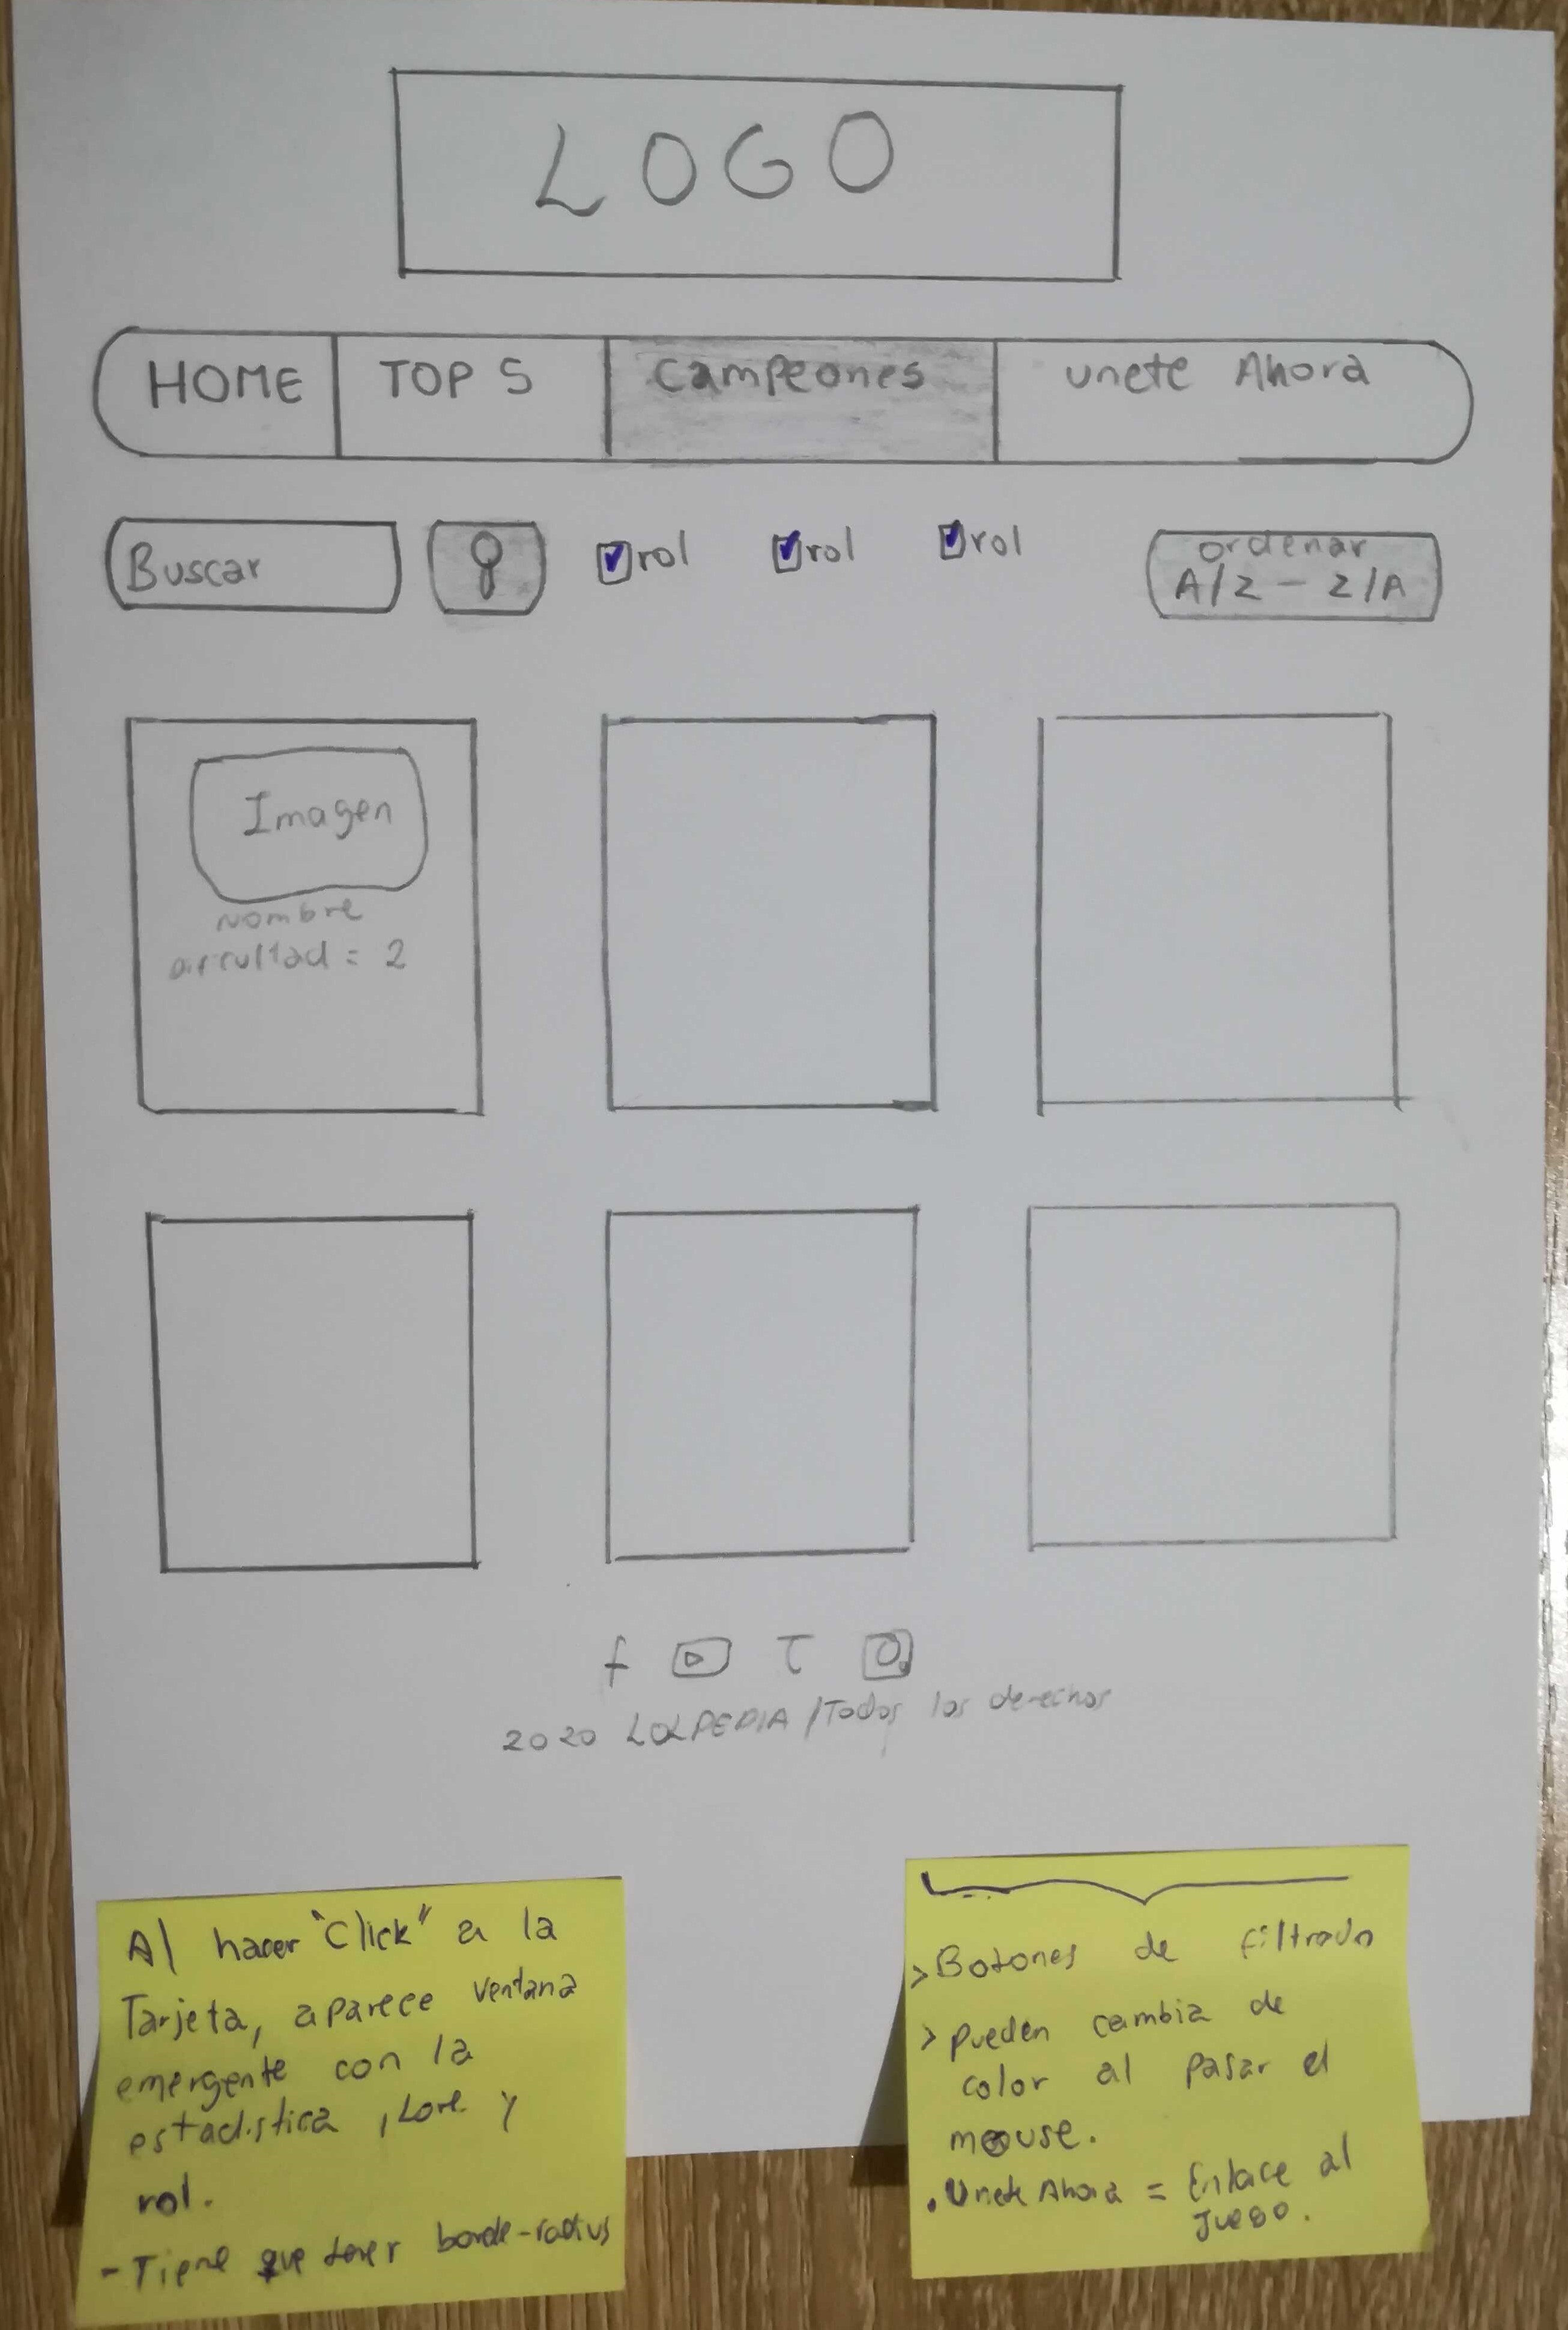 LOGO
HOME TOP 5 Campeones unete Ahora
Buscar rol rol rol ordenar
A/Z - Z/A
Imagen
Nombre
dificultad = 2
f T
2020 LOLPEDIA /Todos los derechos
Al hacer "Click" a la
Tarjeta, aparece ventana
emergente con la
estadistica, Lore y
rol.
- Tiene que tener borde-radius
> Botones de filtrado
> pueden cambia de
color al pasar el
mouse.
. Unete Ahora = Enlace al
Juego.